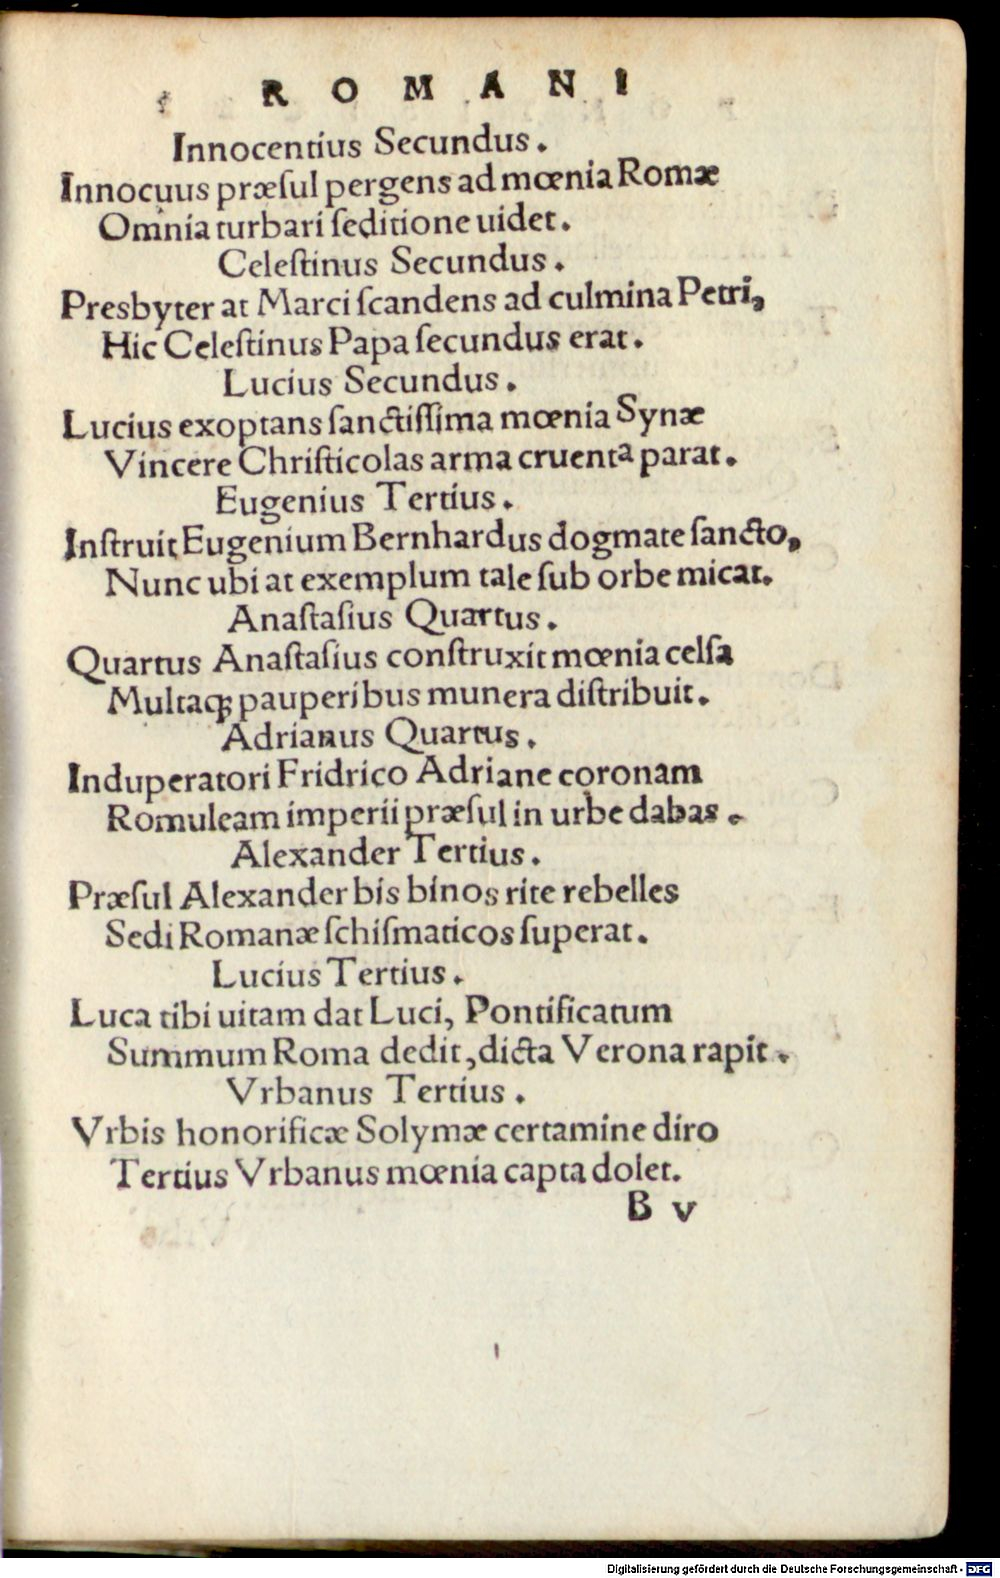 ROMANI
Innocentius Secundus.
Innocuus præſul pergens ad mœnia Romæ
Omnia turbari ſeditione uidet.
Celeſtinus Secundus.
Presbyter at Marci ſcandens ad culmina Petri,
Hic Celeſtinus Papa ſecundus erat.
Lucius Secundus.
Lucius exoptans ſanctiſſima mœnia Synæ
Vincere Chriſticolas arma cruenta parat.
Eugenius Tertius.
Inſtruit Eugenium Bernhardus dogmate ſancto,
Nunc ubi at exemplum tale ſub orbe micat.
Anaſtaſius Quartus.
Quartus Anaſtaſius conſtruxit mœnia celſa
Multaqꝫ pauperibus munera diſtribuit.
Adrianus Quartus.
Induperatori Fridrico Adriane coronam
Romuleam imperii præſul in urbe dabas.
Alexander Tertius.
Præſul Alexander bis binos rite rebelles
Sedi Romanæ ſchiſmaticos ſuperat.
Lucius Tertius.
Luca tibi uitam dat Luci, Pontificatum
Summum Roma dedit, dicta Verona rapit.
Vrbanus Tertius.
Vrbis honorificæ Solymæ certamine diro
Tertius Vrbanus mœnia capta dolet.
B v
Digitalisierung gefördert durch die Deutsche Forschungsgemeinschaft - DFG